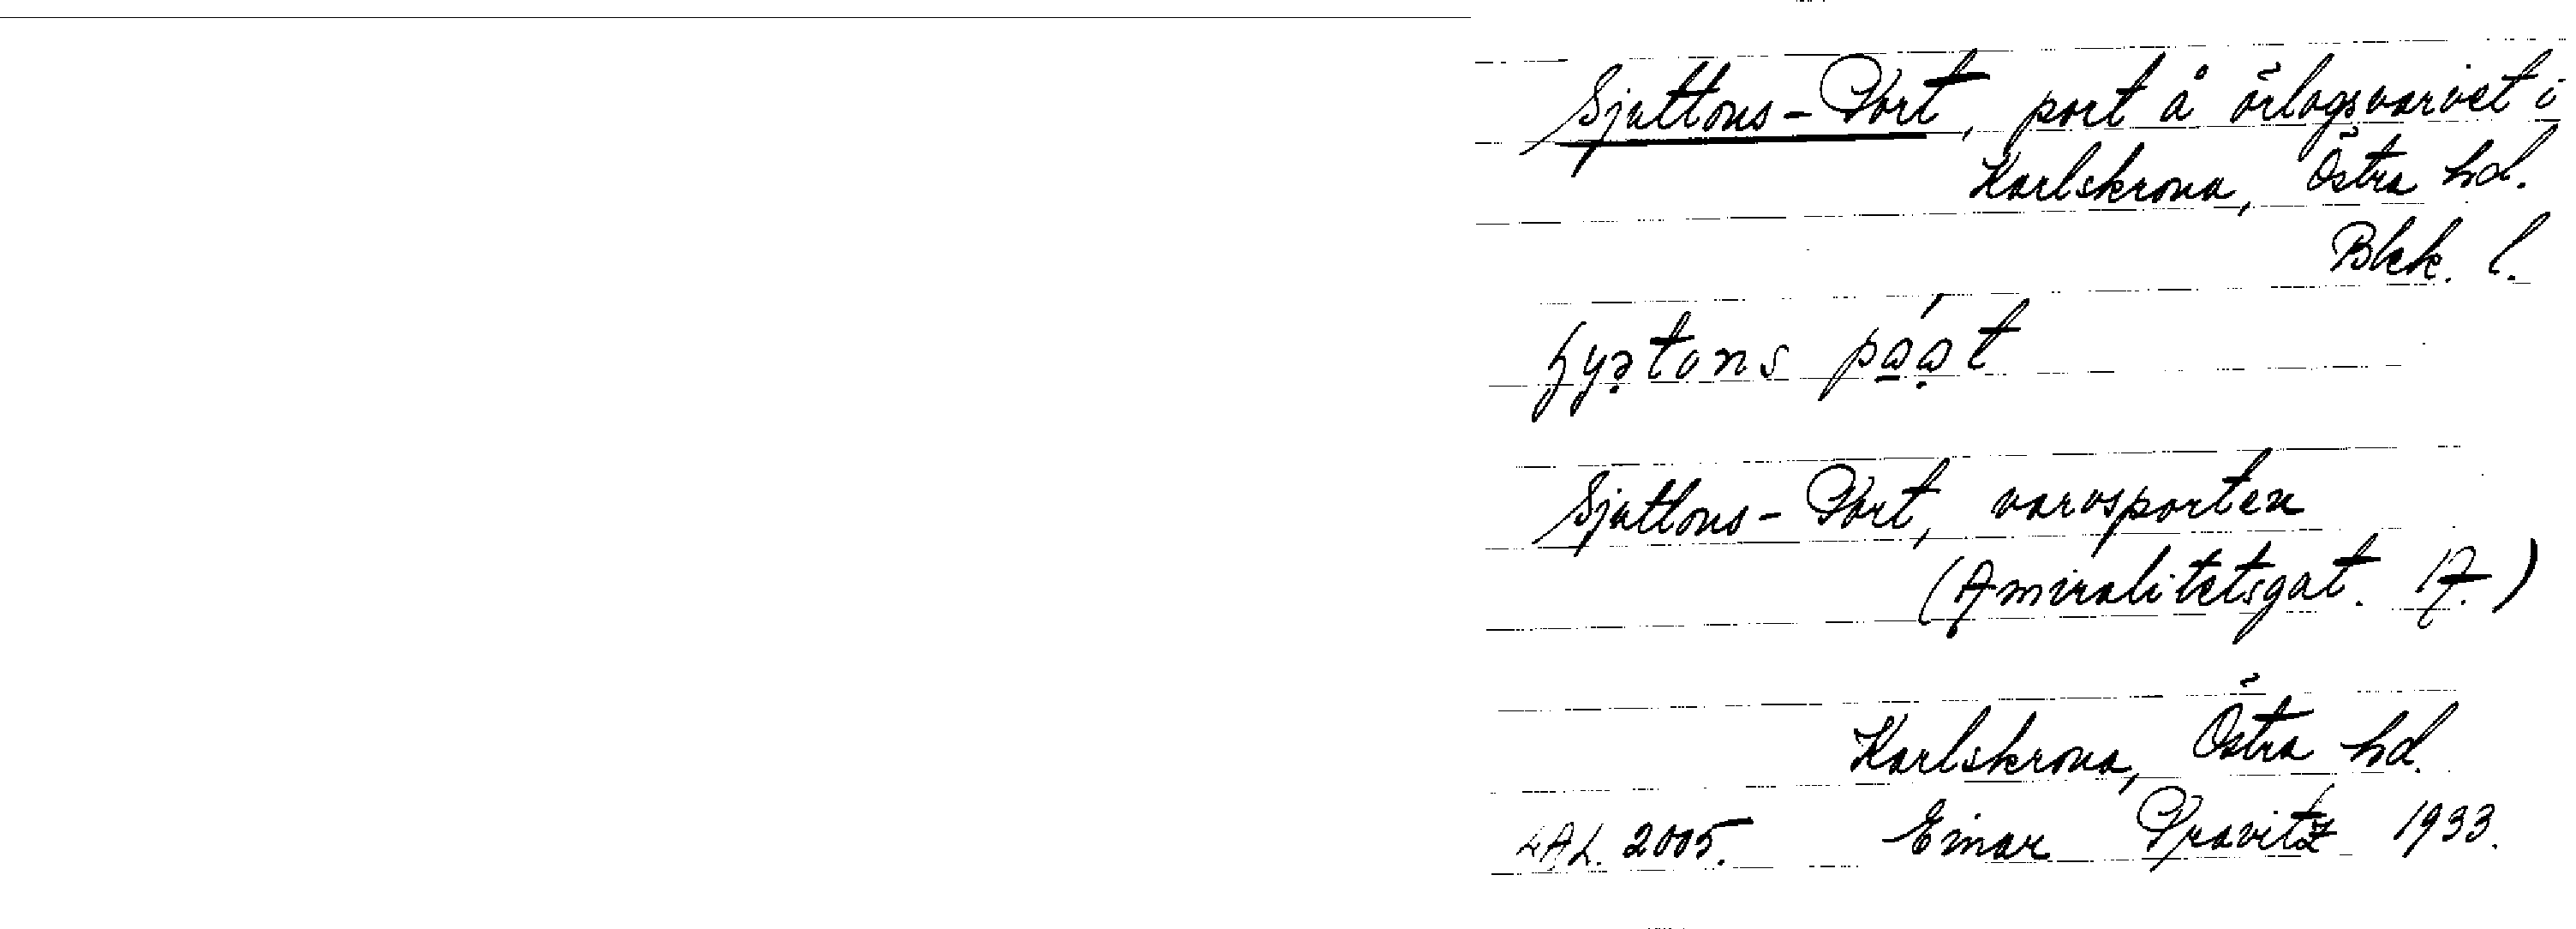 Sjuttons-Port, port å örlogsvarvet i
Karlskrona, Östra hd.
Blek. l.
Sjuttons-Port, varvsporten
(Amiralitetsgat. 17.)
Karlskrona, Östra hd.
LAL. 2005. Einar Pravitz 1933.